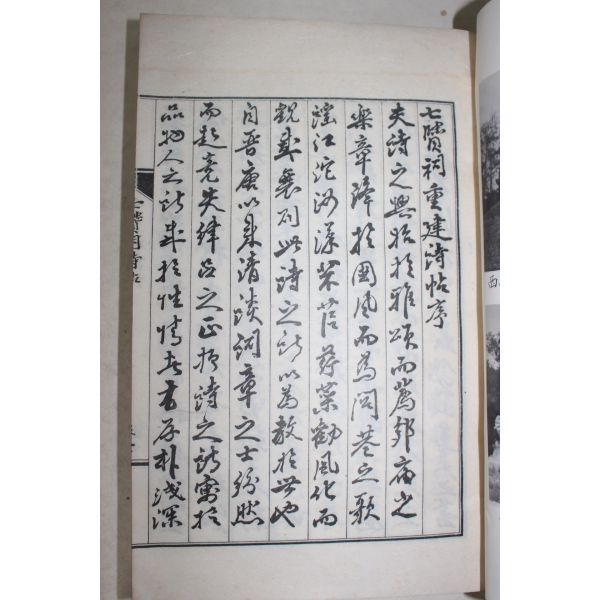 七賢祠重建詩帖序
夫詩之興始於雅頌而薦郊廟之
樂章降於國風而為閭巷之歌
謠江沱汝漢芣苢蘋藻勸風化而
觀盛衰列此詩之所以為教於世也
自晋唐以来清談詞章之士紛然
而起竟失律呂之正於詩之所寓於
品物人之所感於性情者方存朴淺深
七賢祠詩帖
西